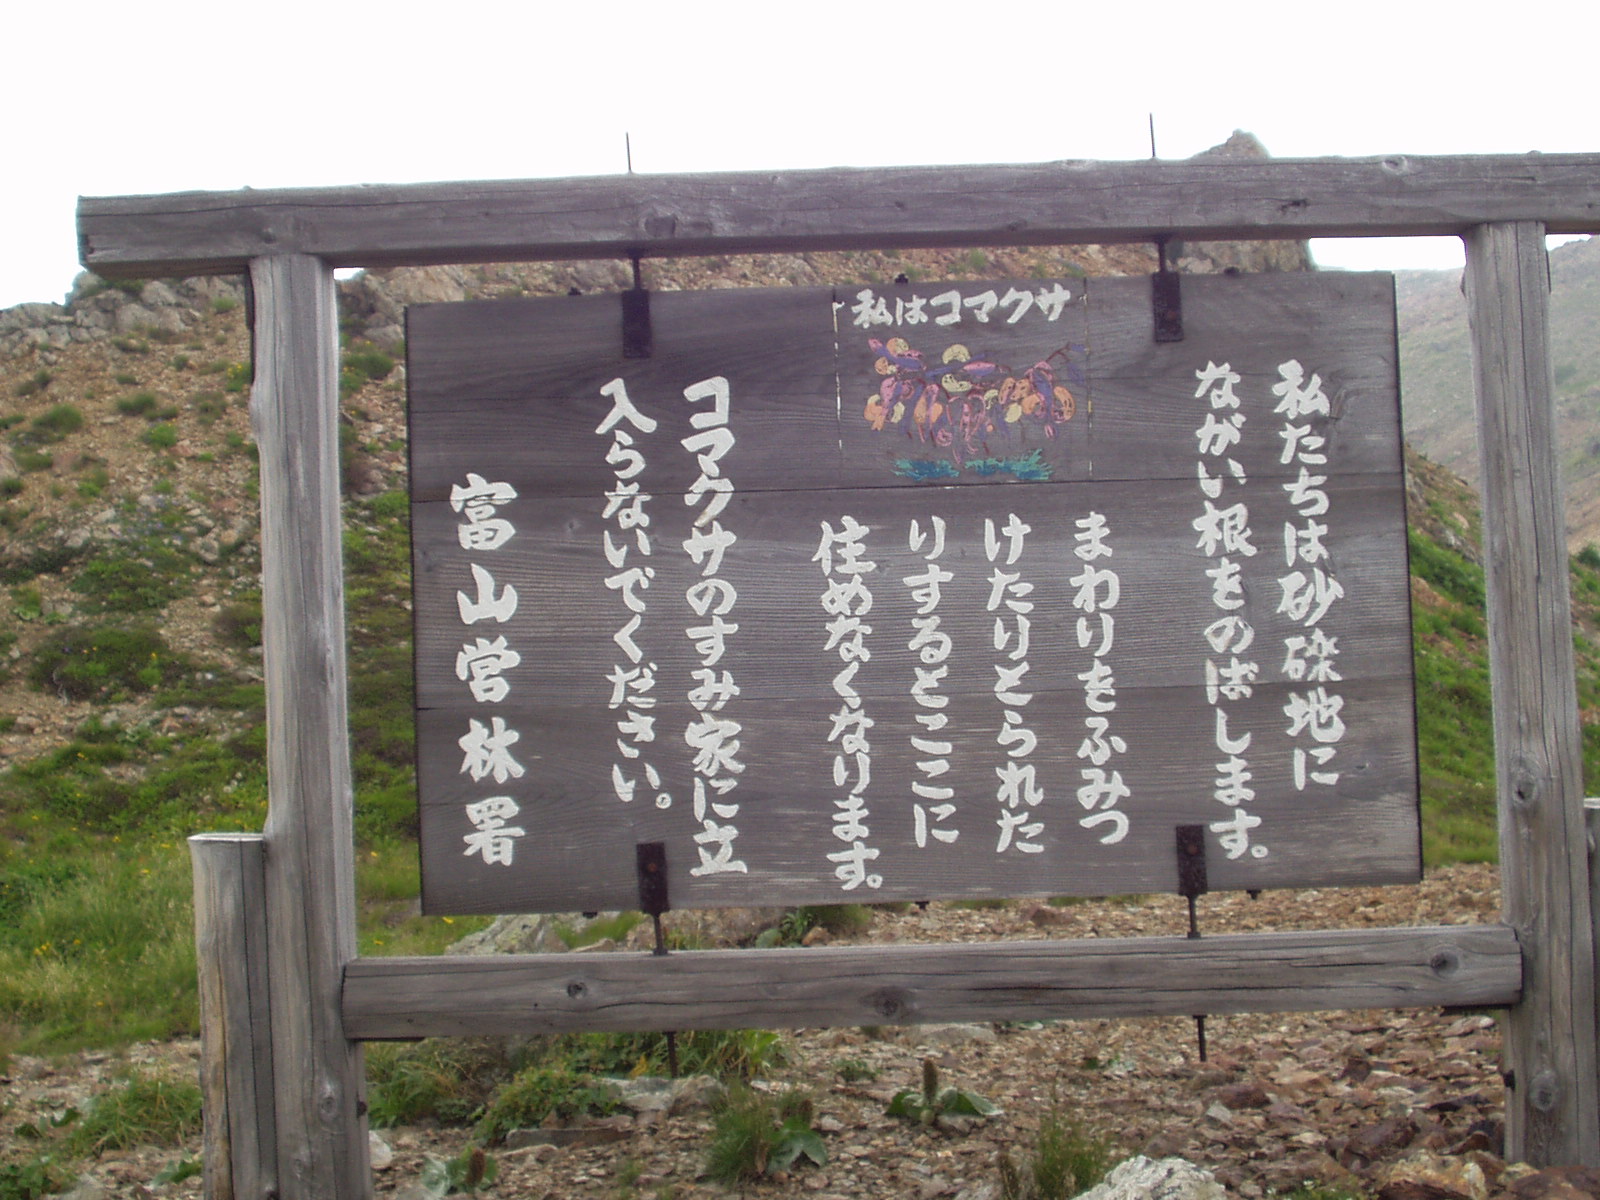 私はコマクサ
私たちは砂礫地に
ながい根をのばします。
まわりをふみつ
けたりとられた
りするとここに
住めなくなります。
コマクサのすみ家に立
入らないでください。
富山営林署